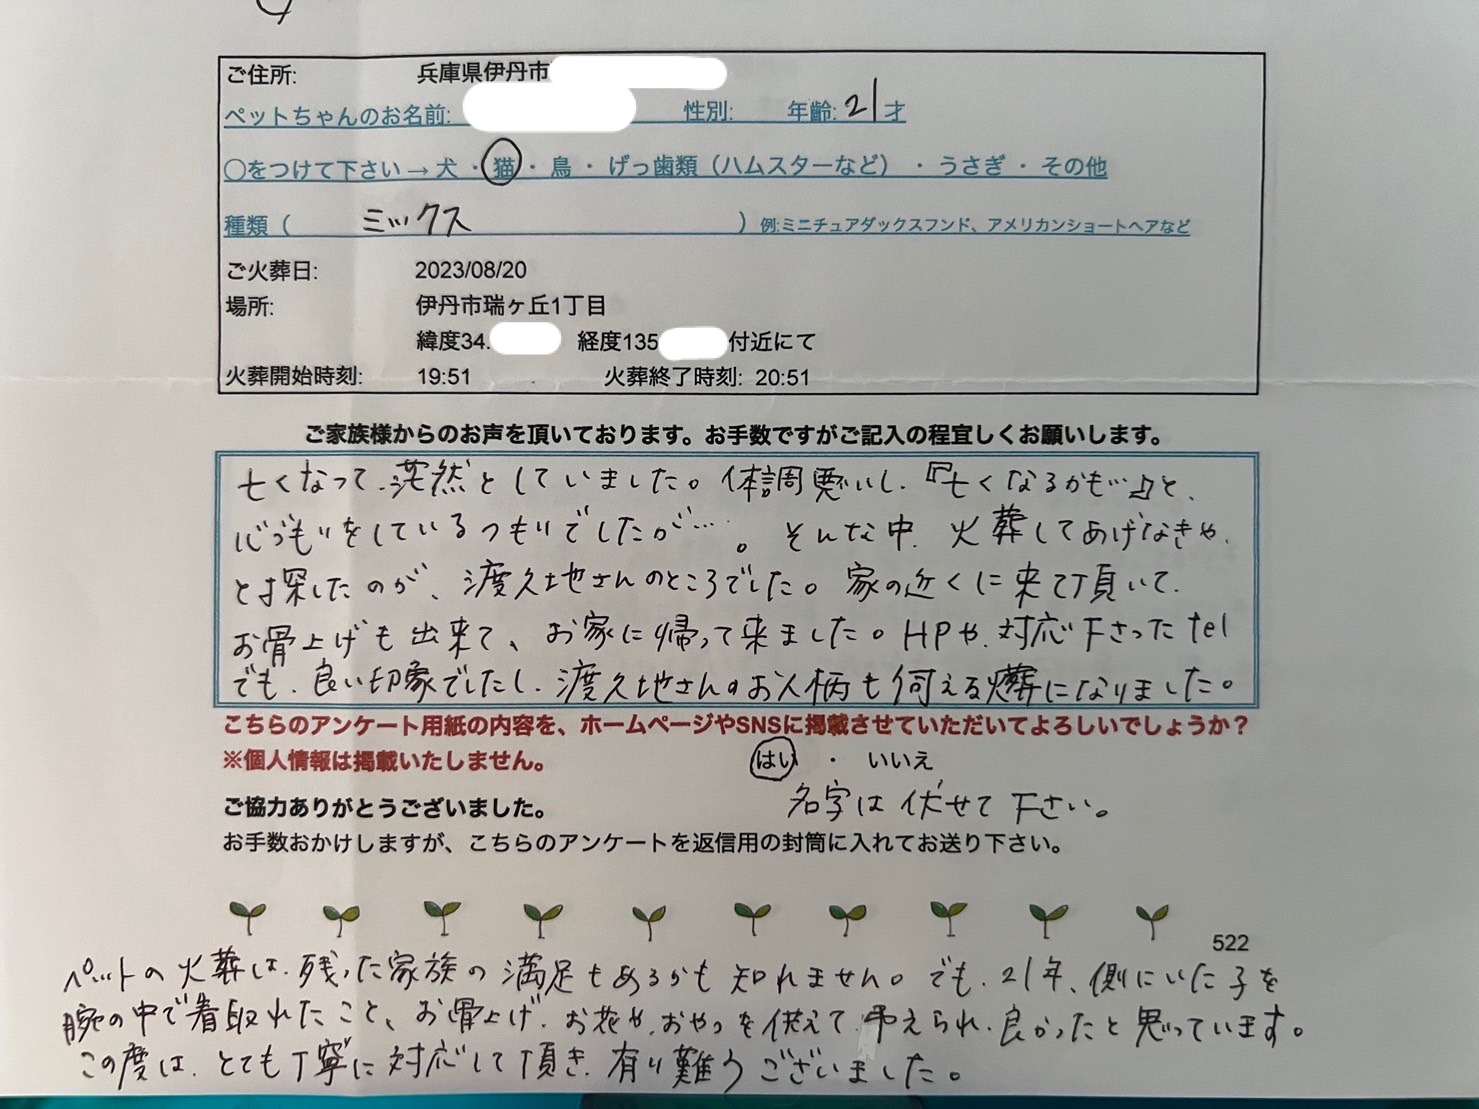 ご住所: 兵庫県伊丹市
ペットちゃんのお名前: 性別: 年齢: 21才
○をつけて下さい→犬 ・ 猫 ・ 鳥 ・ げっ歯類（ハムスターなど） ・ うさぎ ・ その他
種類（ ミックス ）例:ミニチュアダックスフンド、アメリカンショートヘアなど
ご火葬日: 2023/08/20
場所: 伊丹市瑞ヶ丘1丁目
緯度34. 経度135 付近にて
火葬開始時刻: 19:51 火葬終了時刻: 20:51
ご家族様からのお声を頂いております。お手数ですがご記入の程宜しくお願いします。
亡くなって、茫然としていました。体調悪いし、『亡くなるかも…』と、
心づもりをしているつもりでしたが…。そんな中、火葬してあげなきゃ、
と探したのが、渡久地さんのところでした。家の近くに来て頂いて、
お骨上げも出来て、お家に帰って来ました。HPや、対応下さったtel
でも、良い印象でしたし、渡久地さんのお人柄も伺える火葬になりました。
こちらのアンケート用紙の内容を、ホームページやSNSに掲載させていただいてよろしいでしょうか？
※個人情報は掲載いたしません。 はい ・ いいえ
ご協力ありがとうございました。 名字は伏せて下さい。
お手数おかけしますが、こちらのアンケートを返信用の封筒に入れてお送り下さい。
522
ペットの火葬は、残った家族の満足もあるかも知れません。でも、21年、側にいた子を
腕の中で看取れたこと、お骨上げ、お花や、おやつを供えて、与えられ、良かったと思っています。
この度は、とても丁寧に対応して頂き、有り難うございました。